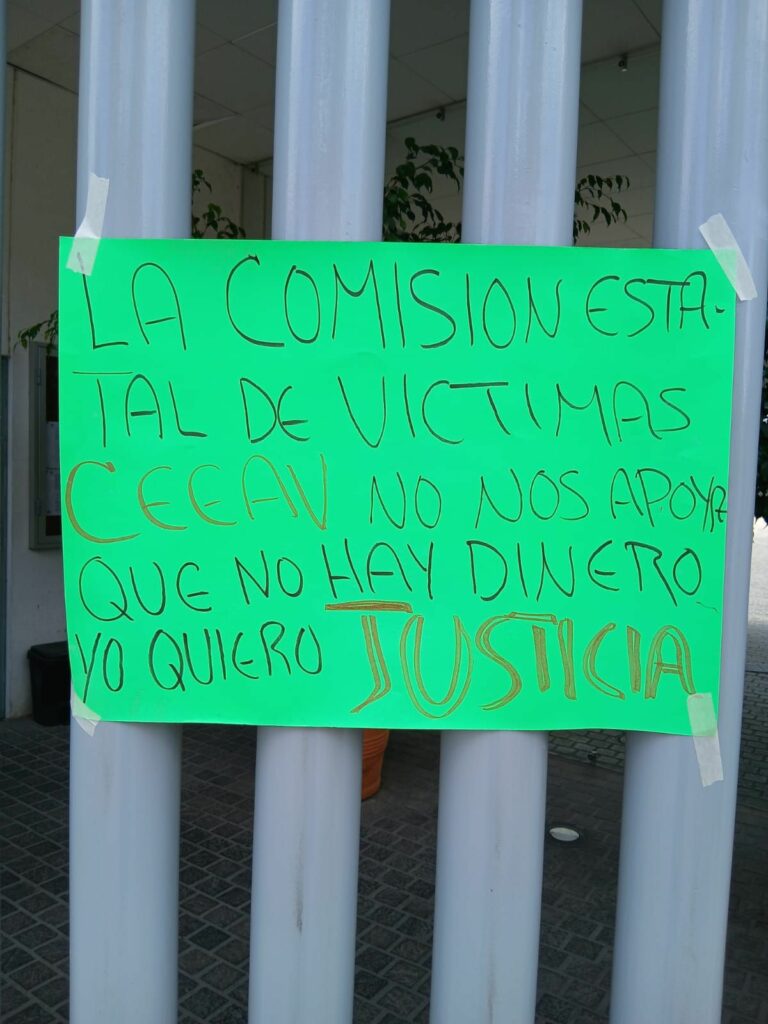 LA COMISION ESTA-
TAL DE VICTIMAS
CEEAV NO NOS APOYA
QUE NO HAY DINERO
YO QUIERO JUSTICIA